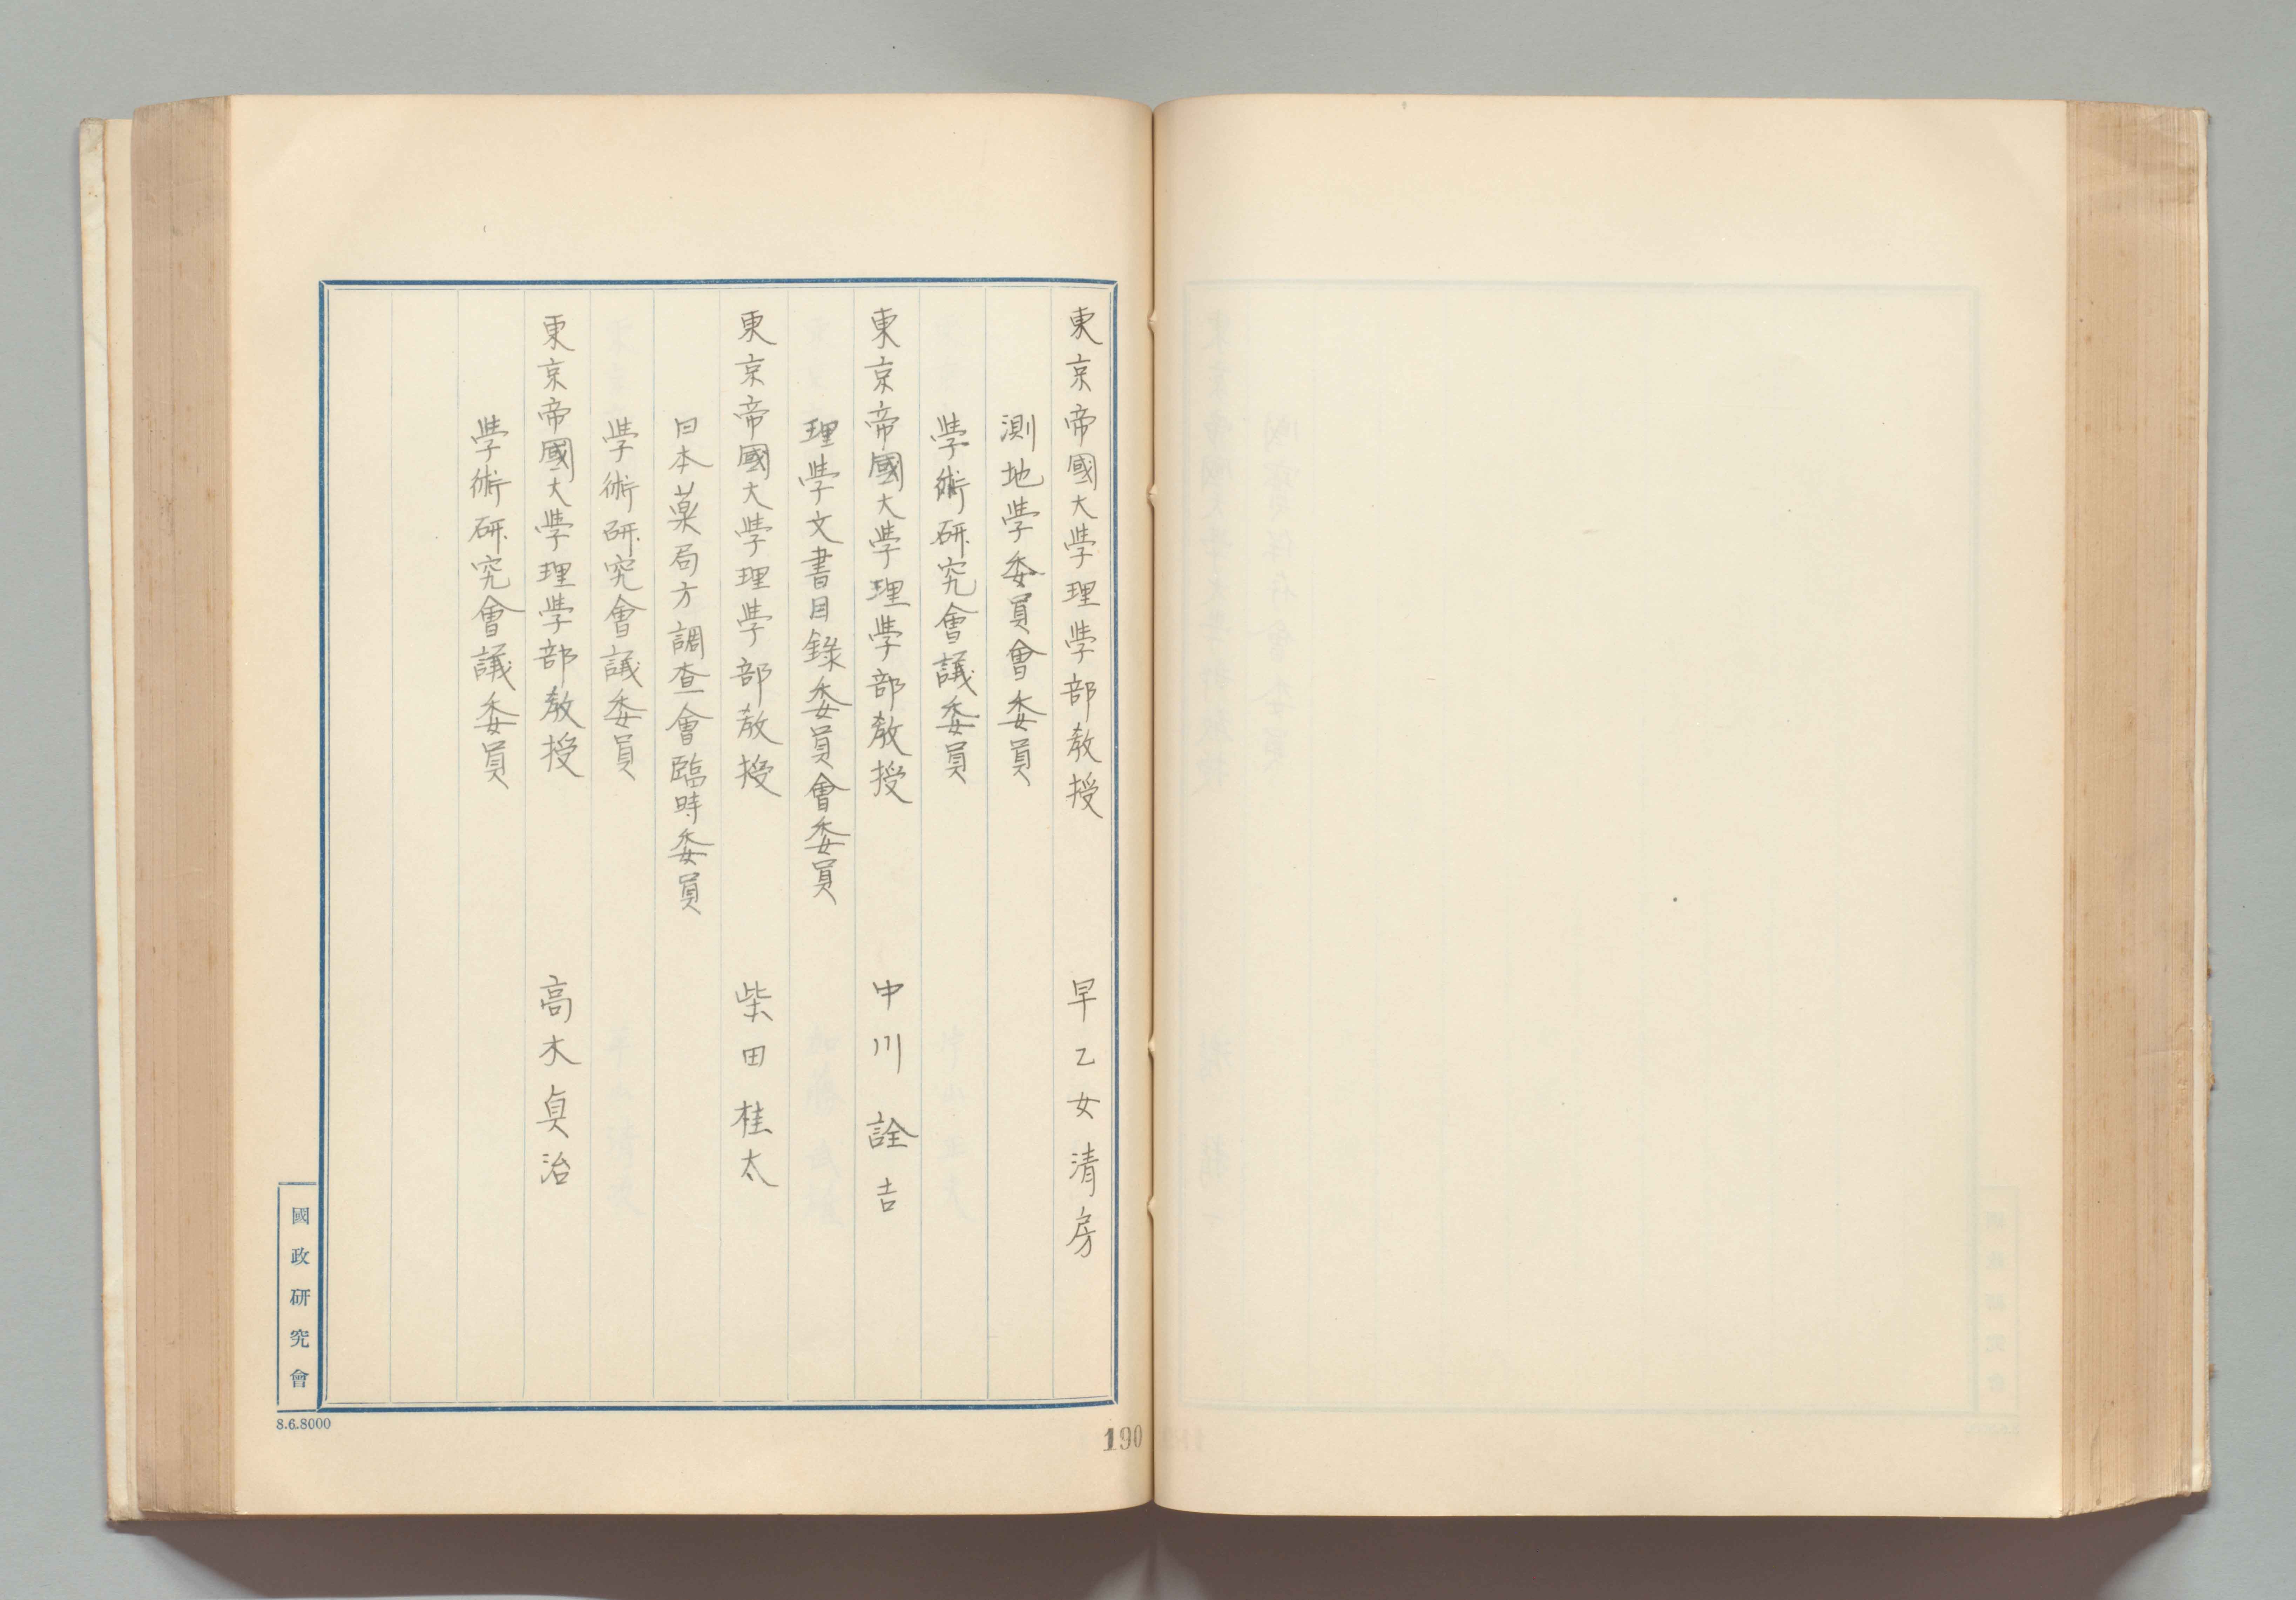 東京帝國大學理學部教授 早乙女清房
測地學委員會委員
學術研究會議委員
東京帝國大學理學部教授 中川詮吉
理學文書目錄委員會委員
東京帝國大學理學部教授 柴田桂太
日本薬局方調查會臨時委員
學術研究會議委員
東京帝國大學理學部教授 高木貞治
學術研究會議委員
國政研究會
8.6.8000
190